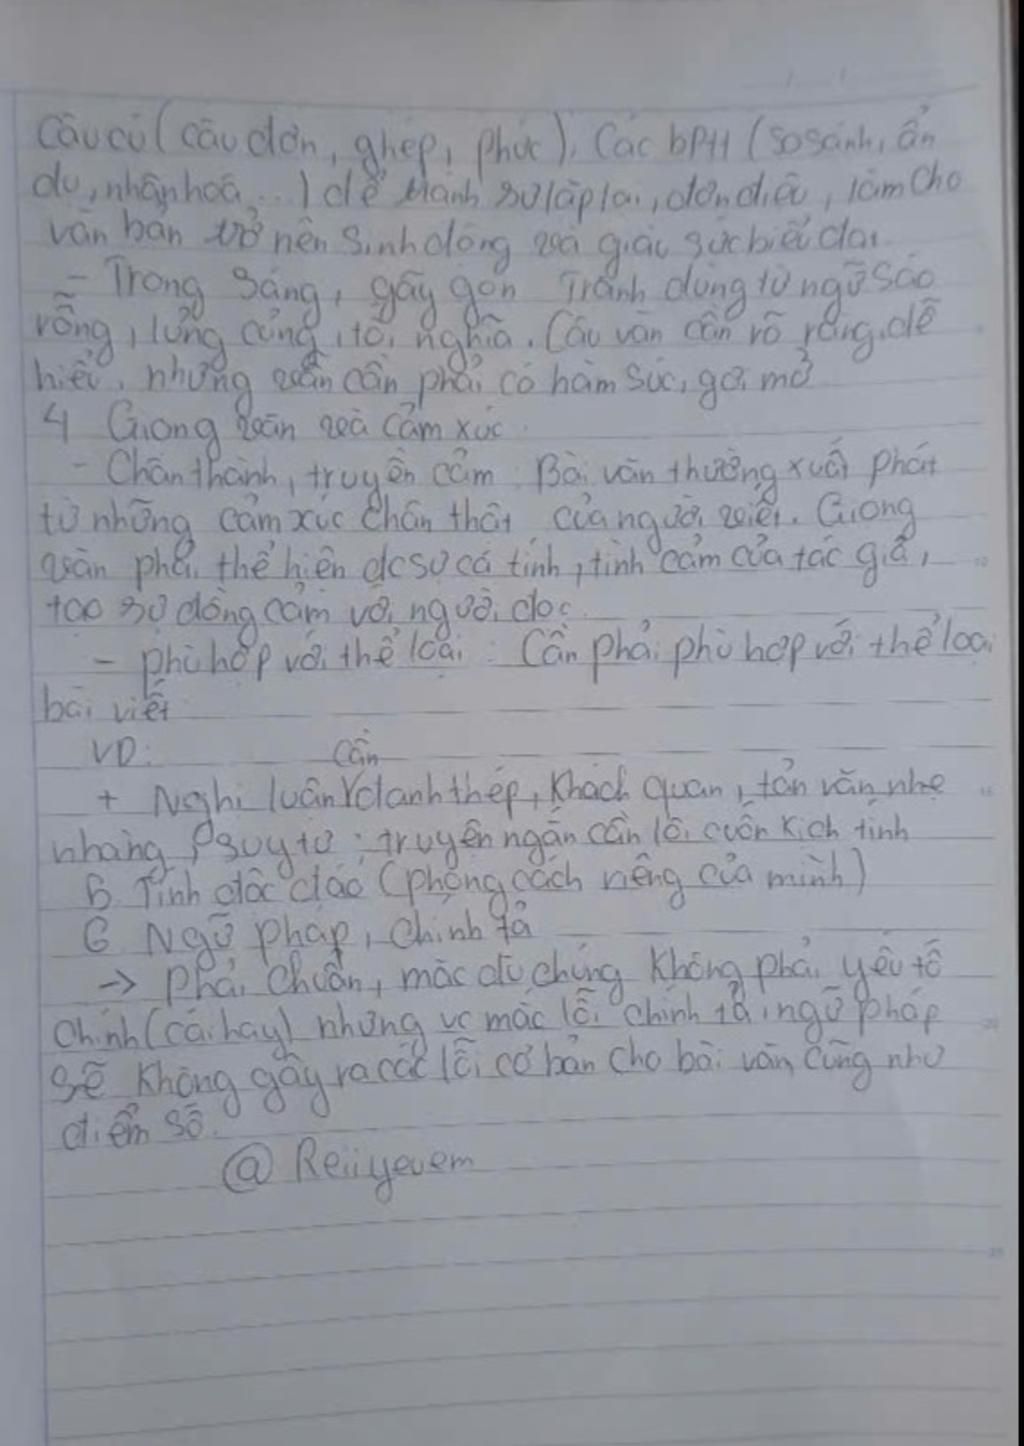 Câu cú (câu đơn, ghép, phức), Các bPTT (so sánh, ẩn
dụ, nhân hoá...) để tránh sự lặp lại, đơn điệu, làm cho
văn bản trở nên sinh động và giàu sức biểu đạt
- Trong sáng, gãy gọn Tránh dùng từ ngữ sáo
rỗng, lủng củng, tối nghĩa. Câu văn cần rõ ràng, dễ
hiểu, nhưng vẫn cần phải có hàm súc, gợi mở
4 Giọng văn và cảm xúc
- Chân thành, truyền cảm: Bài văn thường xuất phát
từ những cảm xúc chân thật của người viết. Giọng
văn phải thể hiện đc sự cá tính, tình cảm của tác giả,
tạo sự đồng cảm với người đọc
- phù hợp với thể loại: Cần phải phù hợp với thể loại
bài viết
VD: cần
+ Nghị luận danh thép, khách quan, tản văn nhẹ
nhàng, suy tư; truyện ngắn cần lôi cuốn kịch tính
5 Tính độc đáo (phong cách riêng của mình)
6 Ngữ pháp, Chính tả
-> phải Chuẩn, mặc dù chúng không phải yếu tố
chính (cái hay) nhưng vc mắc lỗi chính tả, ngữ pháp
sẽ không gây ra các lỗi cơ bản cho bài văn cũng như
điểm số.
@ Reiiyeuem